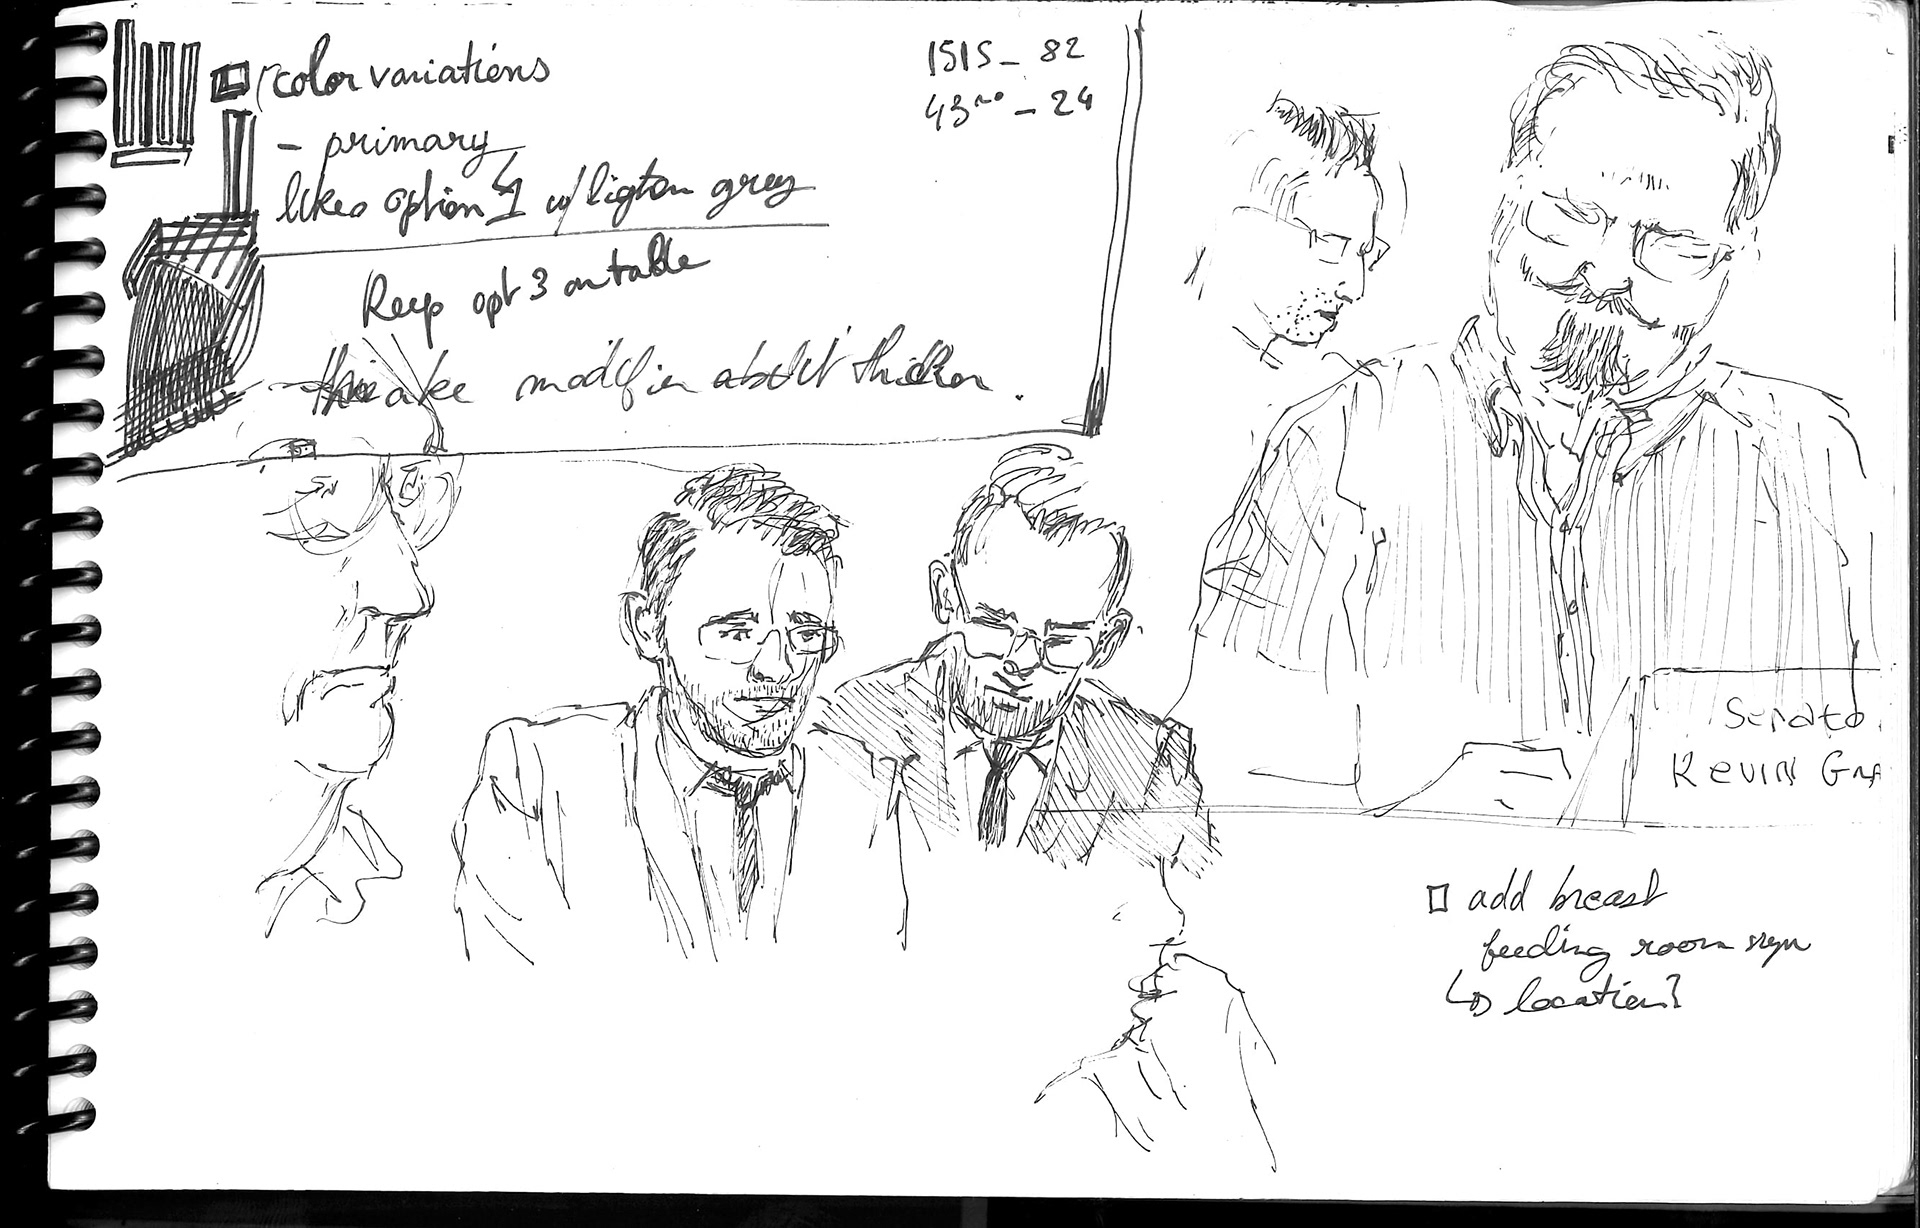 color variations
- primary
likes option 1 w/ligton grey
Keep opt 3 on table
make modifier a bit thicker.
1515 - 82
43 - 24
Senato
KEVIN GRA
□ add breast
feeding room sign
↳ location?